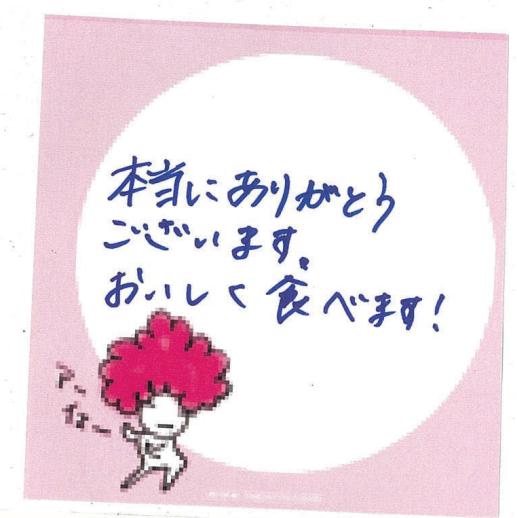 本当にありがとう
ございます。
おいしく食べます!
アー